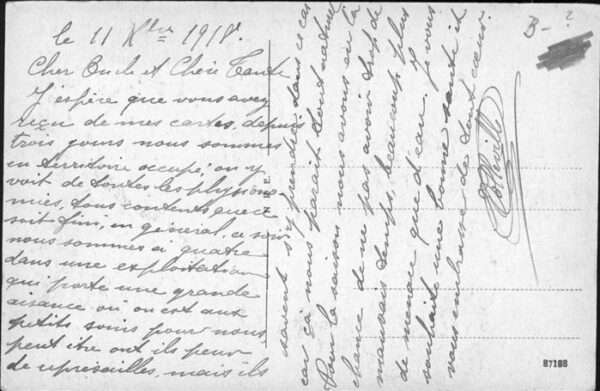 le 11 Xbre 1918.
Cher Oncle et Chère Tante
J'espère que vous avez
reçu de mes cartes, depuis
trois jours nous sommes
en territoire occupé; on y
voit de toutes les physiono
mies, tous contents que ce
soit fini, en général, ce soir
nous sommes ici quatre
dans une exploitation
qui porte une grande
aisance où on est aux
petits soins pour nous,
peut être ont ils peur
de represailles, mais ils
savent s'y prendre dans ce cas
car ici nous parait tout naturel
Pour la saison nous avons eu la
chance de ne pas avoir trop de
mauvais temps, beaucoup plus
de manque que d'eau. Je vous
souhaite une bonne santé et
vous embrasse de tout cœur.
B-?
87188